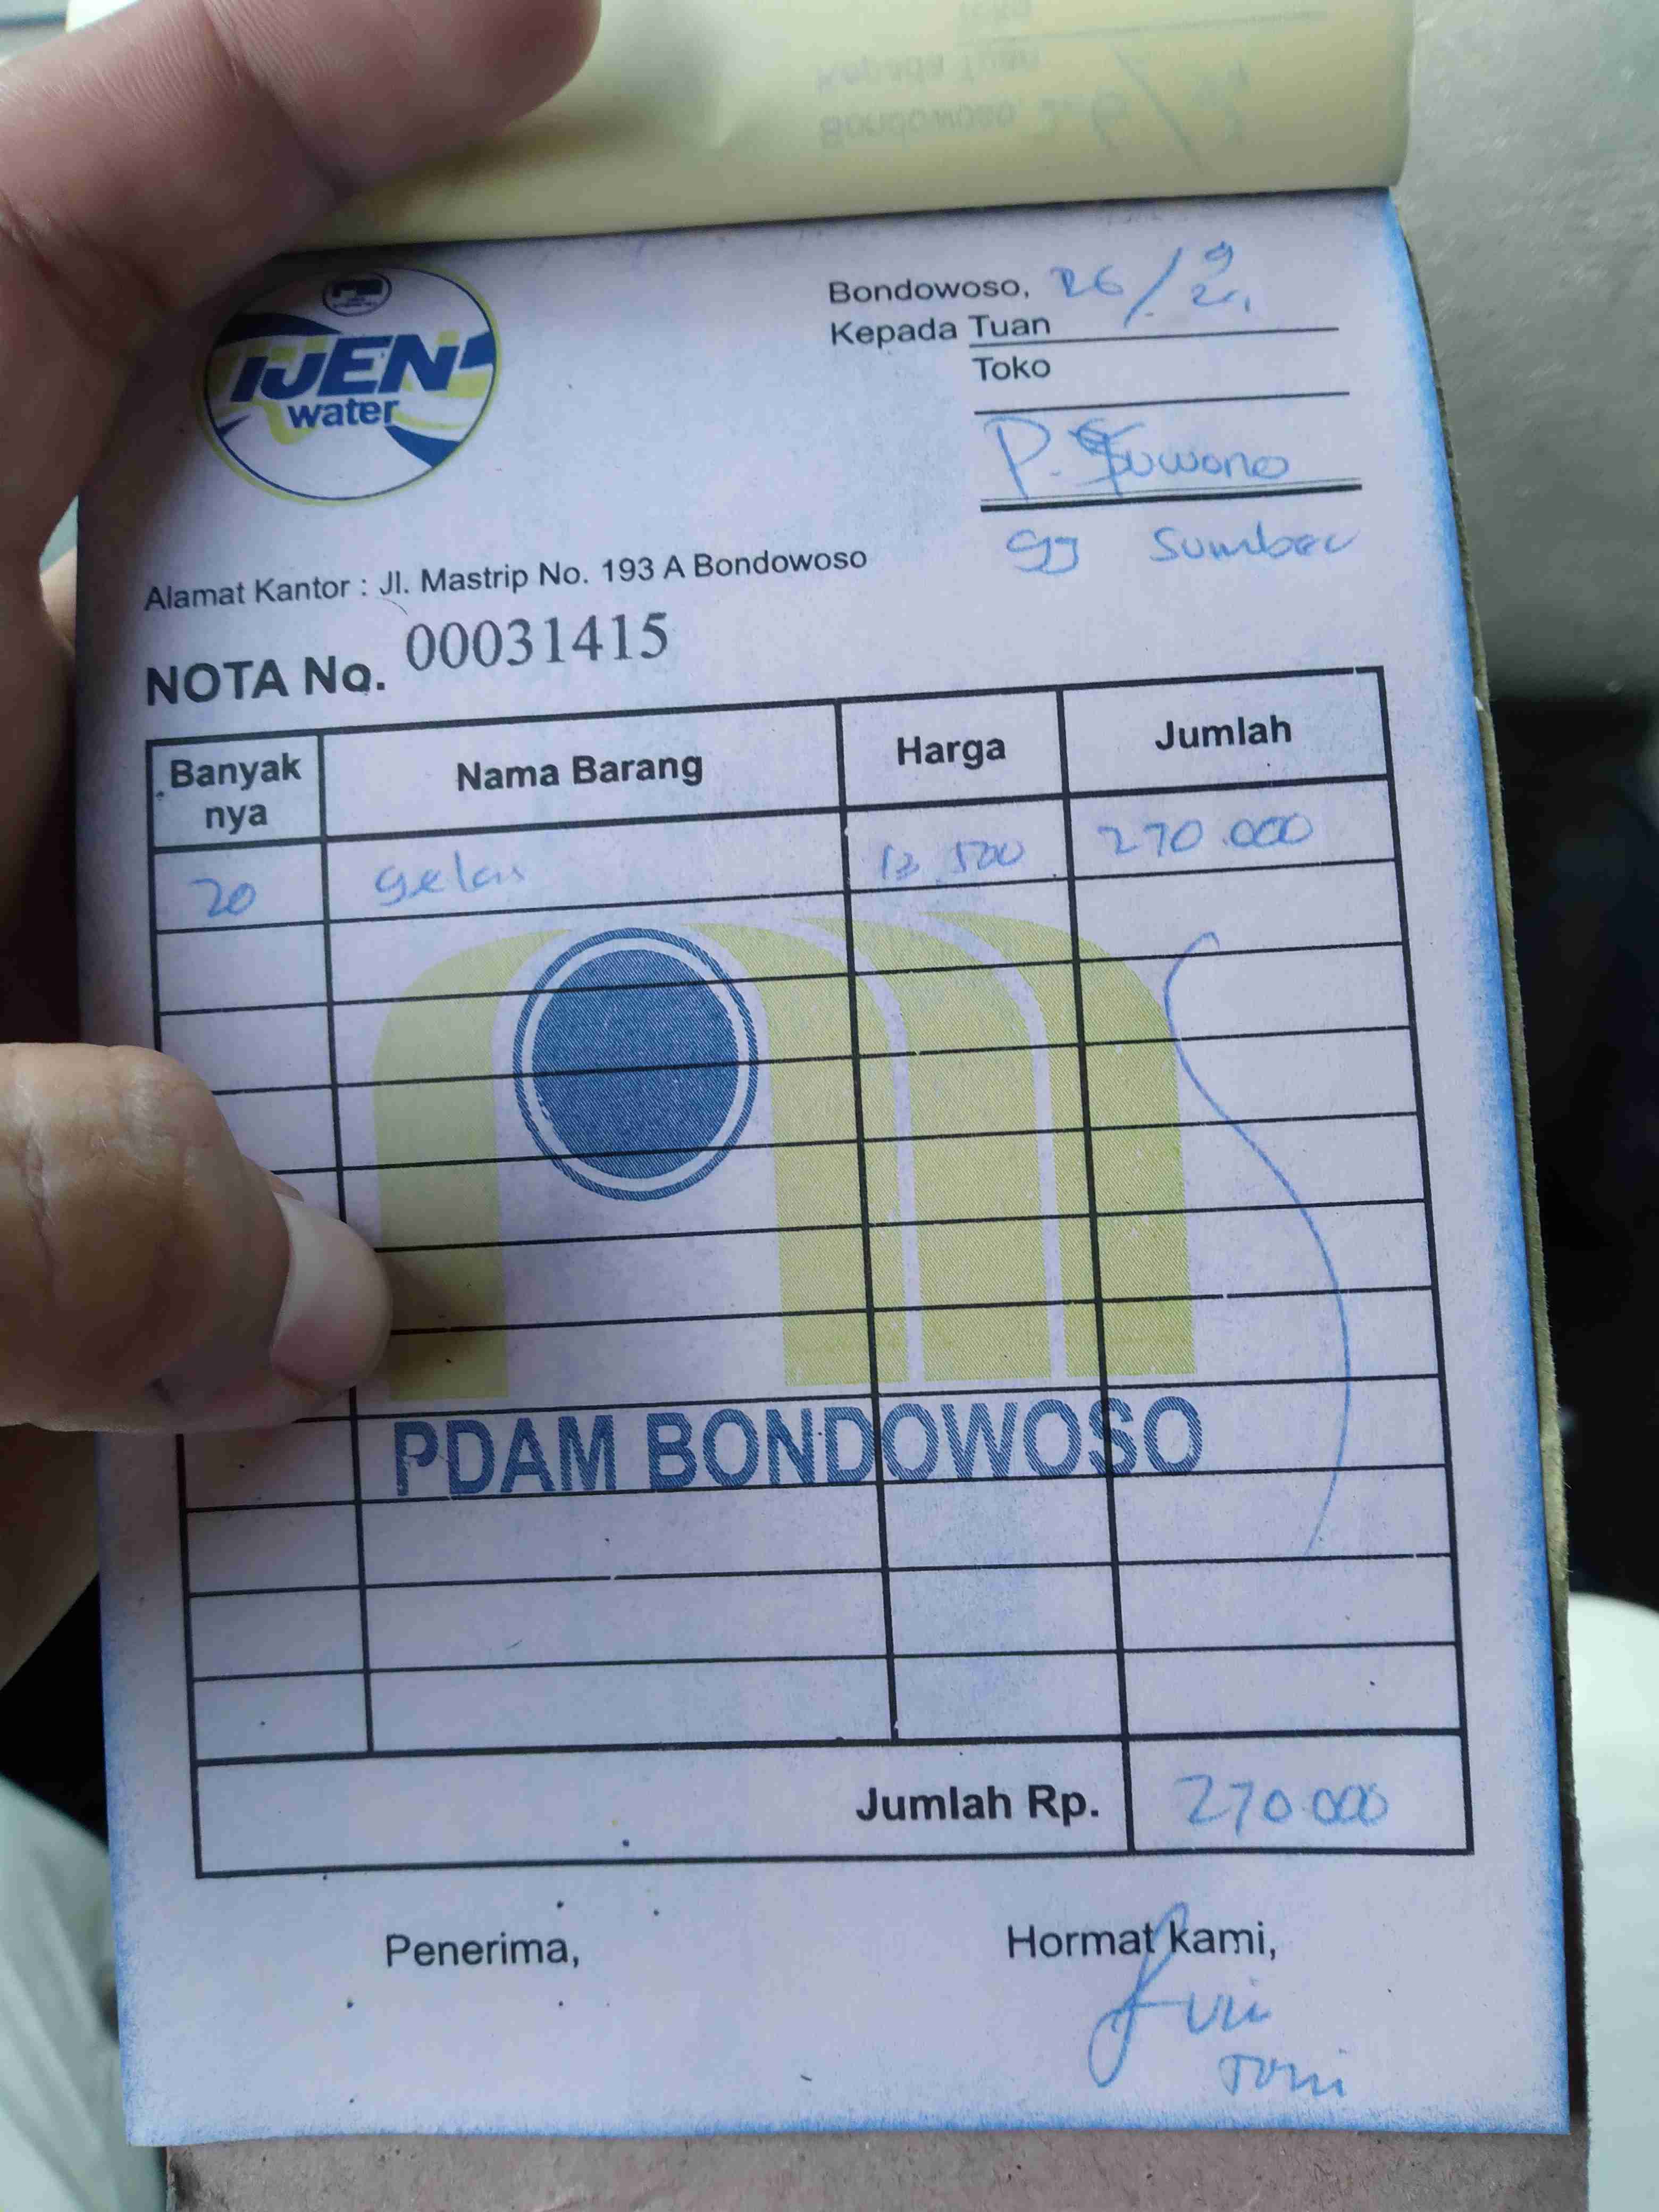 IJEN
water
Bondowoso, 26/9
Kepada Tuan
Toko
P. Suwono
gg Sumber
Alamat Kantor : Jl. Mastrip No. 193 A Bondowoso
NOTA No. 00031415
Banyak nya Nama Barang Harga Jumlah
20 gelas 13.500 270.000
PDAM BONDOWOSO
Jumlah Rp. 270.000
Penerima, Hormat kami,
Toni